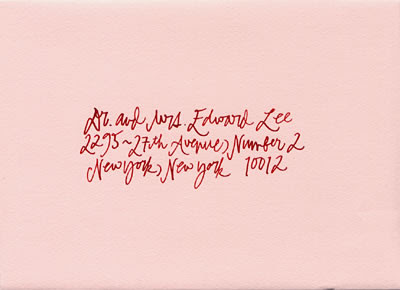 Dr. and Mrs. Edward Lee
2295~27th Avenue, Number 2
New York, New York 10012